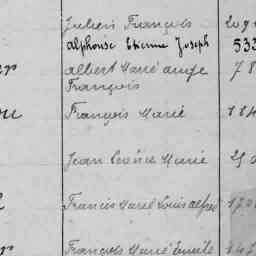 Julien François
Alphonse Etienne Joseph 533
er Albert Marie ange 78
François
ou François Marie 184
Jean Marie
Francis Marie Louis alfred 170
er François Marie Emile 47